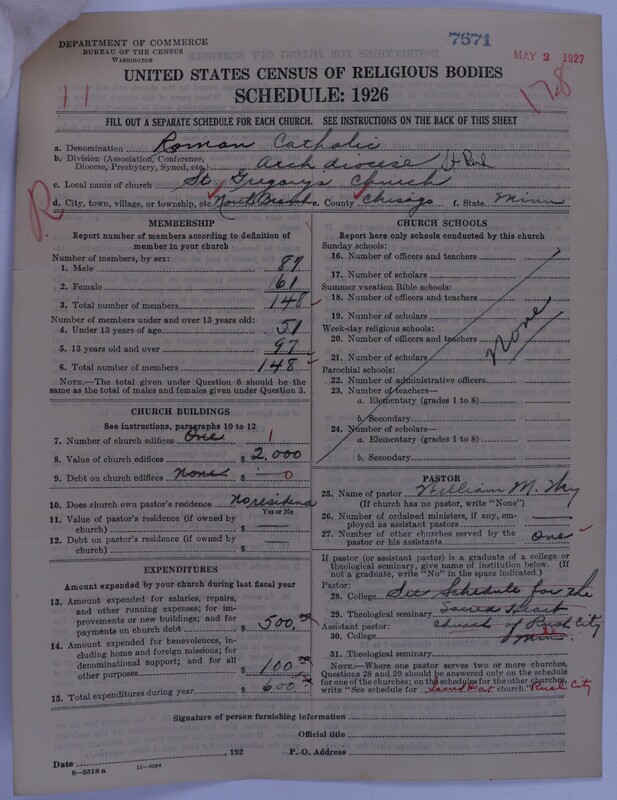 DEPARTMENT OF COMMERCE
BUREAU OF THE CENSUS
WASHINGTON
7571
MAY 2 1927
11
178
UNITED STATES CENSUS OF RELIGIOUS BODIES
SCHEDULE: 1926
FILL OUT A SEPARATE SCHEDULE FOR EACH CHURCH. SEE INSTRUCTIONS ON THE BACK OF THIS SHEET
a. Denomination Roman Catholic
b. Division (Association, Conference, Diocese, Presbytery, Synod, etc.) Archdiocese St Paul
c. Local name of church St. Gregory's Church
d. City, town, village, or township, etc. North Branch e. County Chisago f. State Minn
R
MEMBERSHIP
Report number of members according to definition of
member in your church
Number of members, by sex:
1. Male 87
2. Female 61
3. Total number of members 148
Number of members under and over 13 years old:
4. Under 13 years of age 51
5. 13 years old and over 97
6. Total number of members 148
NOTE.—The total given under Question 6 should be the
same as the total of males and females given under Question 3.
CHURCH BUILDINGS
See instructions, paragraphs 10 to 12
7. Number of church edifices One 1
8. Value of church edifices $ 2,000
9. Debt on church edifices None $ 0
10. Does church own pastor's residence No residence
Yes or No
11. Value of pastor's residence (if owned by
church) $
12. Debt on pastor's residence (if owned by
church) $
EXPENDITURES
Amount expended by your church during last fiscal year
13. Amount expended for salaries, repairs,
and other running expenses; for im-
provements or new buildings; and for
payments on church debt $ 500.00
14. Amount expended for benevolences, in-
cluding home and foreign missions; for
denominational support; and for all
other purposes $ 100.00
15. Total expenditures during year $ 600.00
CHURCH SCHOOLS
Report here only schools conducted by this church
Sunday schools:
16. Number of officers and teachers
17. Number of scholars
Summer vacation Bible schools:
18. Number of officers and teachers
19. Number of scholars
Week-day religious schools:
20. Number of officers and teachers
21. Number of scholars
None
Parochial schools:
22. Number of administrative officers
23. Number of teachers—
a. Elementary (grades 1 to 8)
b. Secondary
24. Number of scholars—
a. Elementary (grades 1 to 8)
b. Secondary
PASTOR
25. Name of pastor William M.
(If church has no pastor, write "None")
26. Number of ordained ministers, if any, em-
ployed as assistant pastors
27. Number of other churches served by the
pastor or his assistants One
If pastor (or assistant pastor) is a graduate of a college or
theological seminary, give name of institution below. (If
not a graduate, write "No" in the space indicated.)
Pastor:
28. College See Schedule for the
29. Theological seminary Sacred Heart
Assistant pastor: Church of Rush City
30. College Minn.
31. Theological seminary
NOTE.—Where one pastor serves two or more churches,
Questions 28 and 29 should be answered only on the schedule
for one of the churches; on the schedules for the other churches,
write "See schedule for Sacred Heart church." Rush City
Signature of person furnishing information
Official title
Date , 192 P. O. Address
8—5518a 11—9034